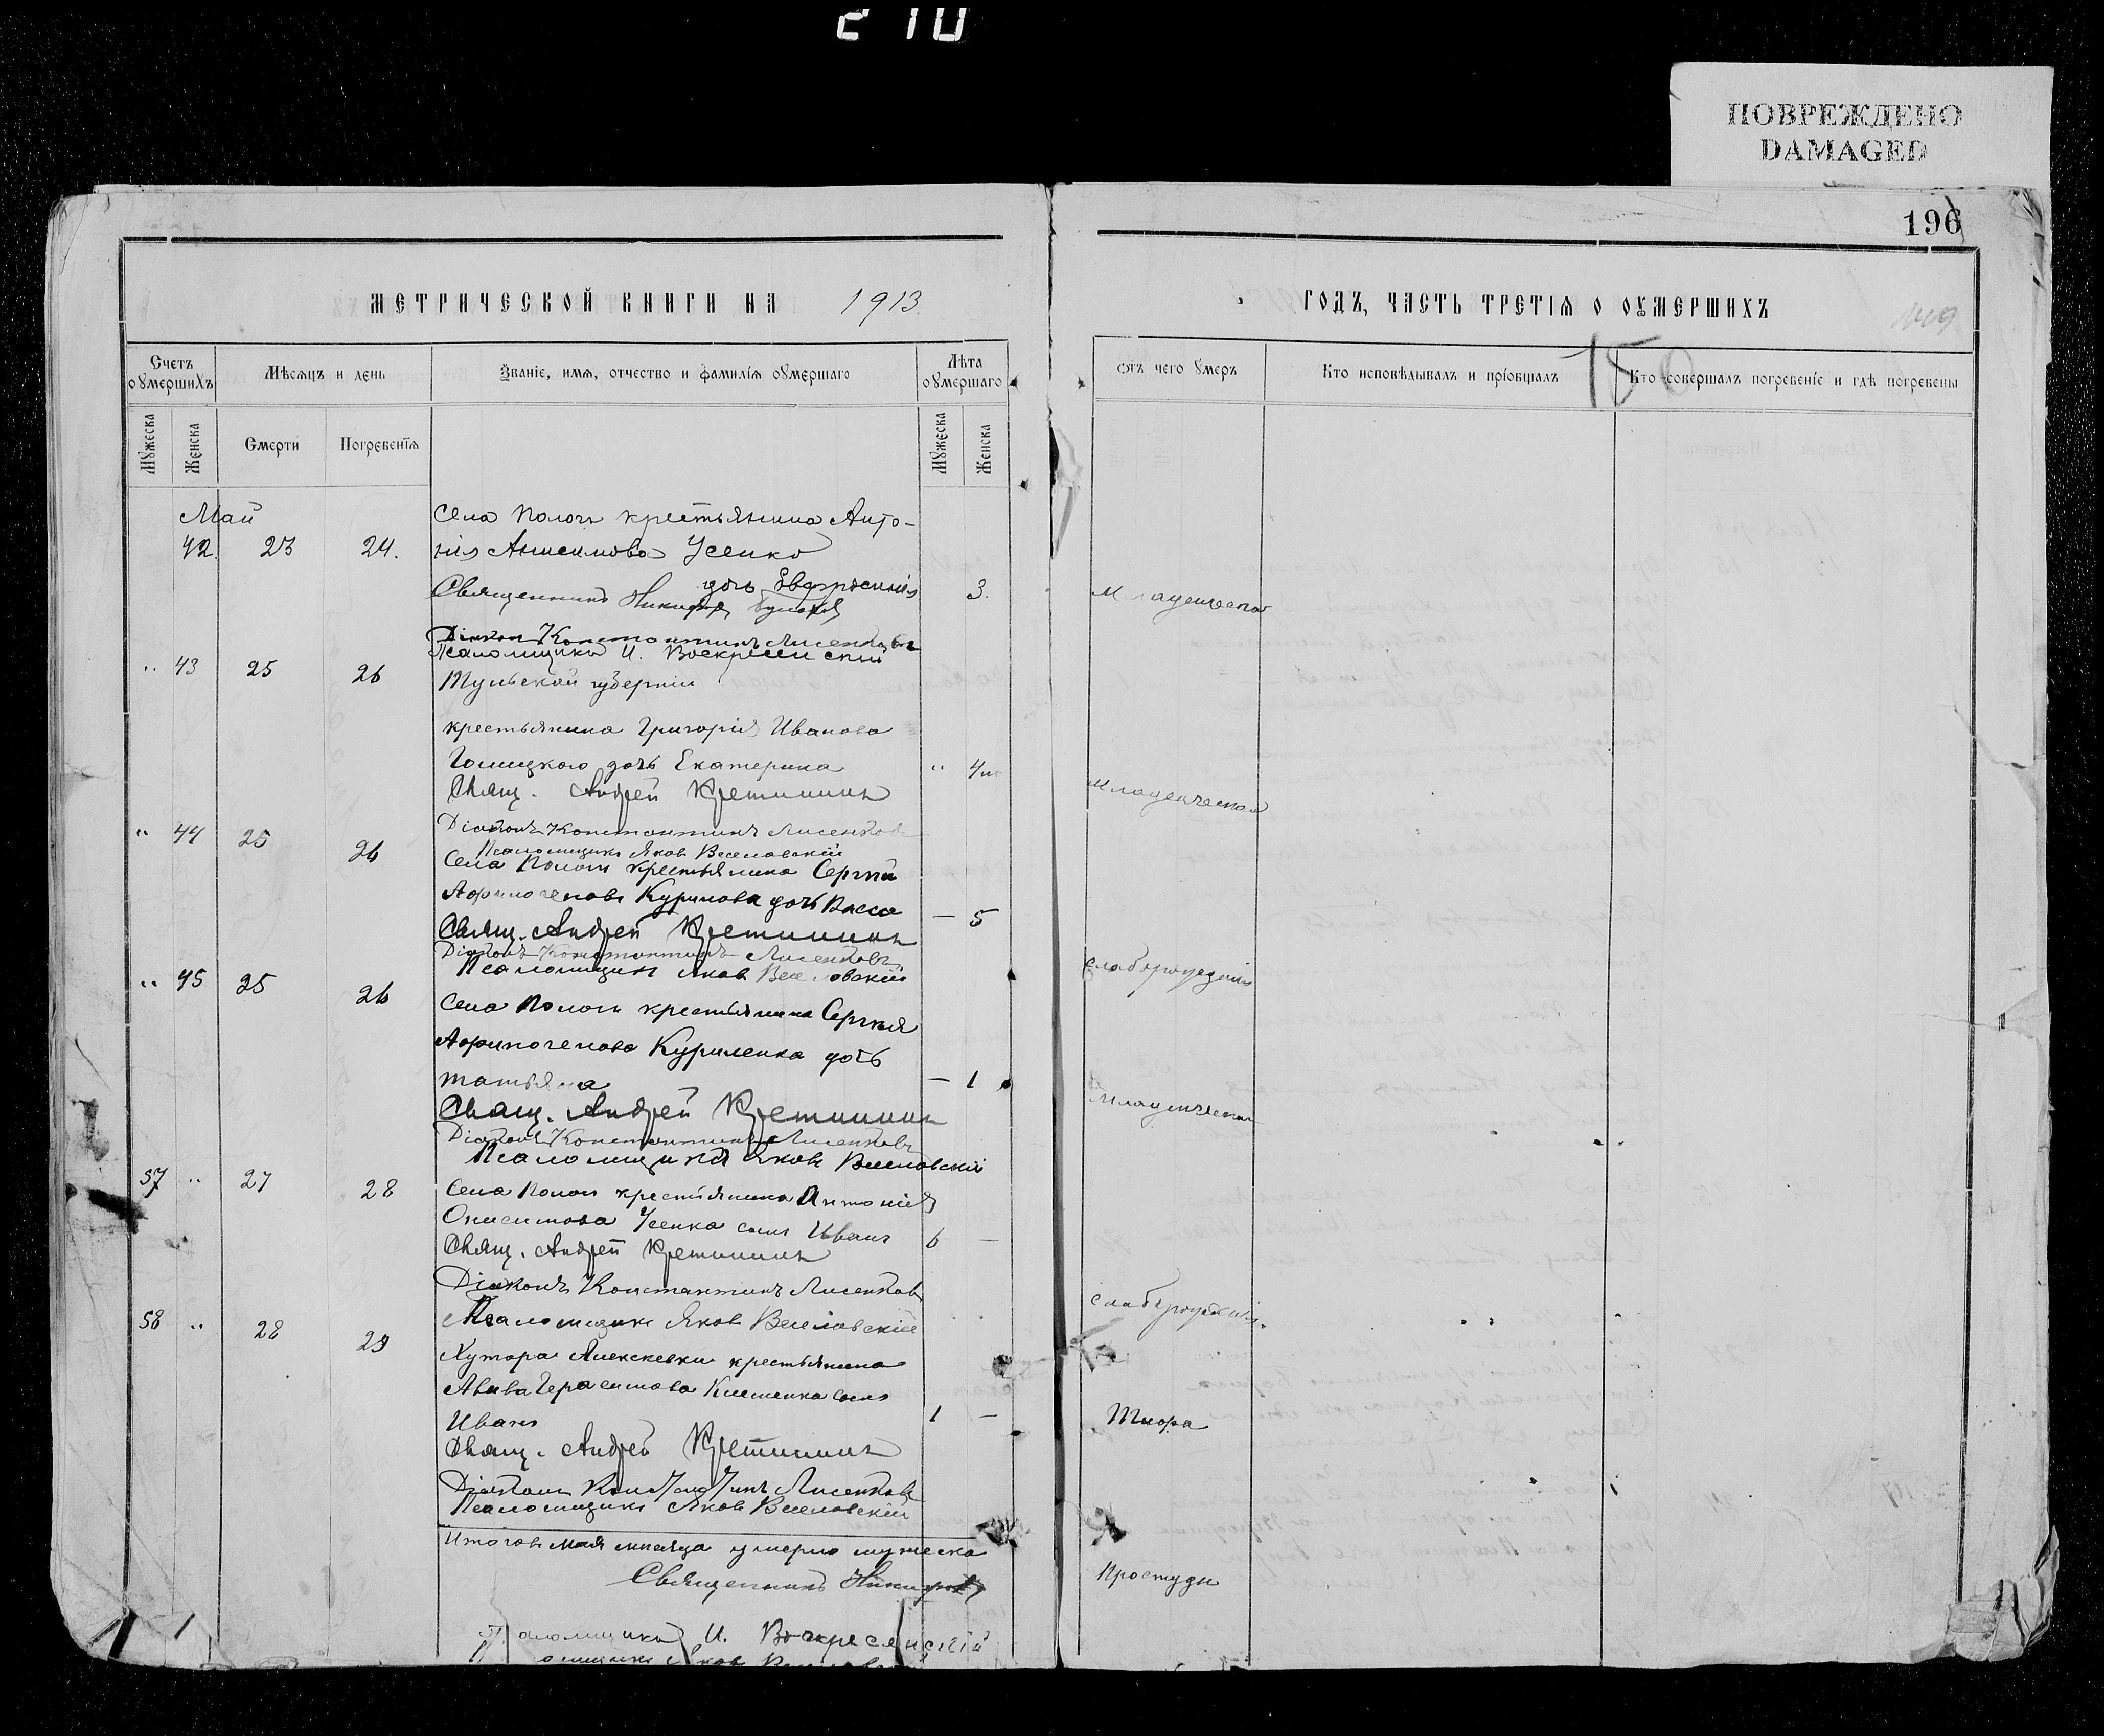 210
ПОВРЕЖДЕНО
DAMAGED
196
МЕТРИЧЕСКОЙ КНИГИ НА 1913
ГОДЪ, ЧАСТЬ ТРЕТІЯ О ОУМЕРШИХЪ
149
150
Счетъ оумершихъ
Мѣсяцъ и день
Званіе, имя, отчество и фамилія оумершаго
Лѣта оумершаго
Отъ чего умеръ
Кто исповѣдывалъ и пріобщалъ
Кто совершалъ погребеніе и гдѣ погребены
Мужеска
Женска
Смерти
Погребенія
Мужеска
Женска
Май
Села Пологъ крестьянина Анто-
42. 23 24. нія Анисимова Усенко
дочь Евфросинія 3. Младенческой
Священникъ Никифоръ
Діаконъ Константинъ Лисенковъ
Псаломщикъ И. Воскресенскій
" 43 25 26 Тульской губерніи
крестьянина Григорія Иванова
дочь Екатерина " 4 Младенческой
Свящ. Андрей Кретининъ
Діаконъ Константинъ Лисенковъ
Псаломщикъ Яковъ Веселовскій
" 44 25 26 Села Пологъ крестьянина Сергѣй
Афиногенова Курилова дочь Васса — 5
Свящ. Андрей Кретининъ
Діаконъ Константинъ Лисенковъ
Псаломщикъ Яковъ Веселовскій
слаборожденія
" 45 25 26 Села Пологъ крестьянина Сергѣя
Афиногенова Куриленка дочь
Татьяна — 1
Свящ. Андрей Кретининъ
Младенческой
Діаконъ Константинъ Лисенковъ
Псаломщикъ Яковъ Веселовскій
57 " 27 28 Села Пологъ крестьянина Антонія
Онисимова Усенка сынъ Иванъ 6 —
Свящ. Андрей Кретининъ
Діаконъ Константинъ Лисенковъ
слаборожденія.
58 " 28 29 Псаломщикъ Яковъ Веселовскій
Хутора Алексеевки крестьянина
Авива Герасимова Клименка сынъ
Иванъ 1 —
Свящ. Андрей Кретининъ
Діаконъ Константинъ Лисенковъ
Псаломщикъ Яковъ Веселовскій
Итогов мая мѣсяца умерло мужеска
Священникъ Никифоръ
Простуды
Псаломщикъ И. Воскресенскій